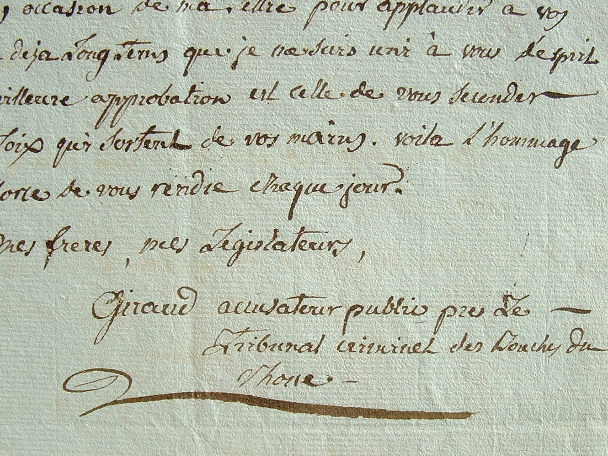 occasion de ma lettre pour applaudir a vos
deja long tems que je me suis uni à vous d'esprit
eilleure approbation est celle de vous seconder
loix qui sortent de vos mains. voila l'hommage
force de vous rendre chaque jour.
mes freres, mes Législateurs,
Giraud accusateur public pres Le
Tribunal criminel des Bouches du
Rhone